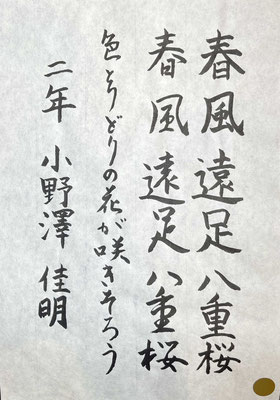 春風遠足八重桜
春風遠足八重桜
色とりどりの花が咲きそろう
二年 小野澤佳明